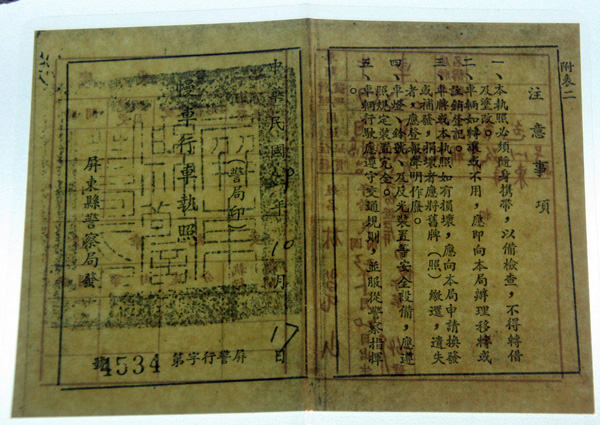 附表二
注意事項
一、本執照必須隨身攜帶，以備檢查，不得轉借
及塗改。
二、車輛如轉讓或不用，應即向本局辦理移轉或
註銷登記。
三、車牌或本執照如有損壞，應向本局申請換發
或補發，損壞者應將舊牌（照）繳還，遺失
者，應登報聲明作廢。
四、車燈、鈴號、及反光裝置等安全設備，應遵
照規定裝置完全。
五、車輛行駛應遵守交通規則，並服從警察指揮
。
中華民國年10月17日
慢車行車執照
（警局印）
屏東縣警察局發
屏警行字第4534號